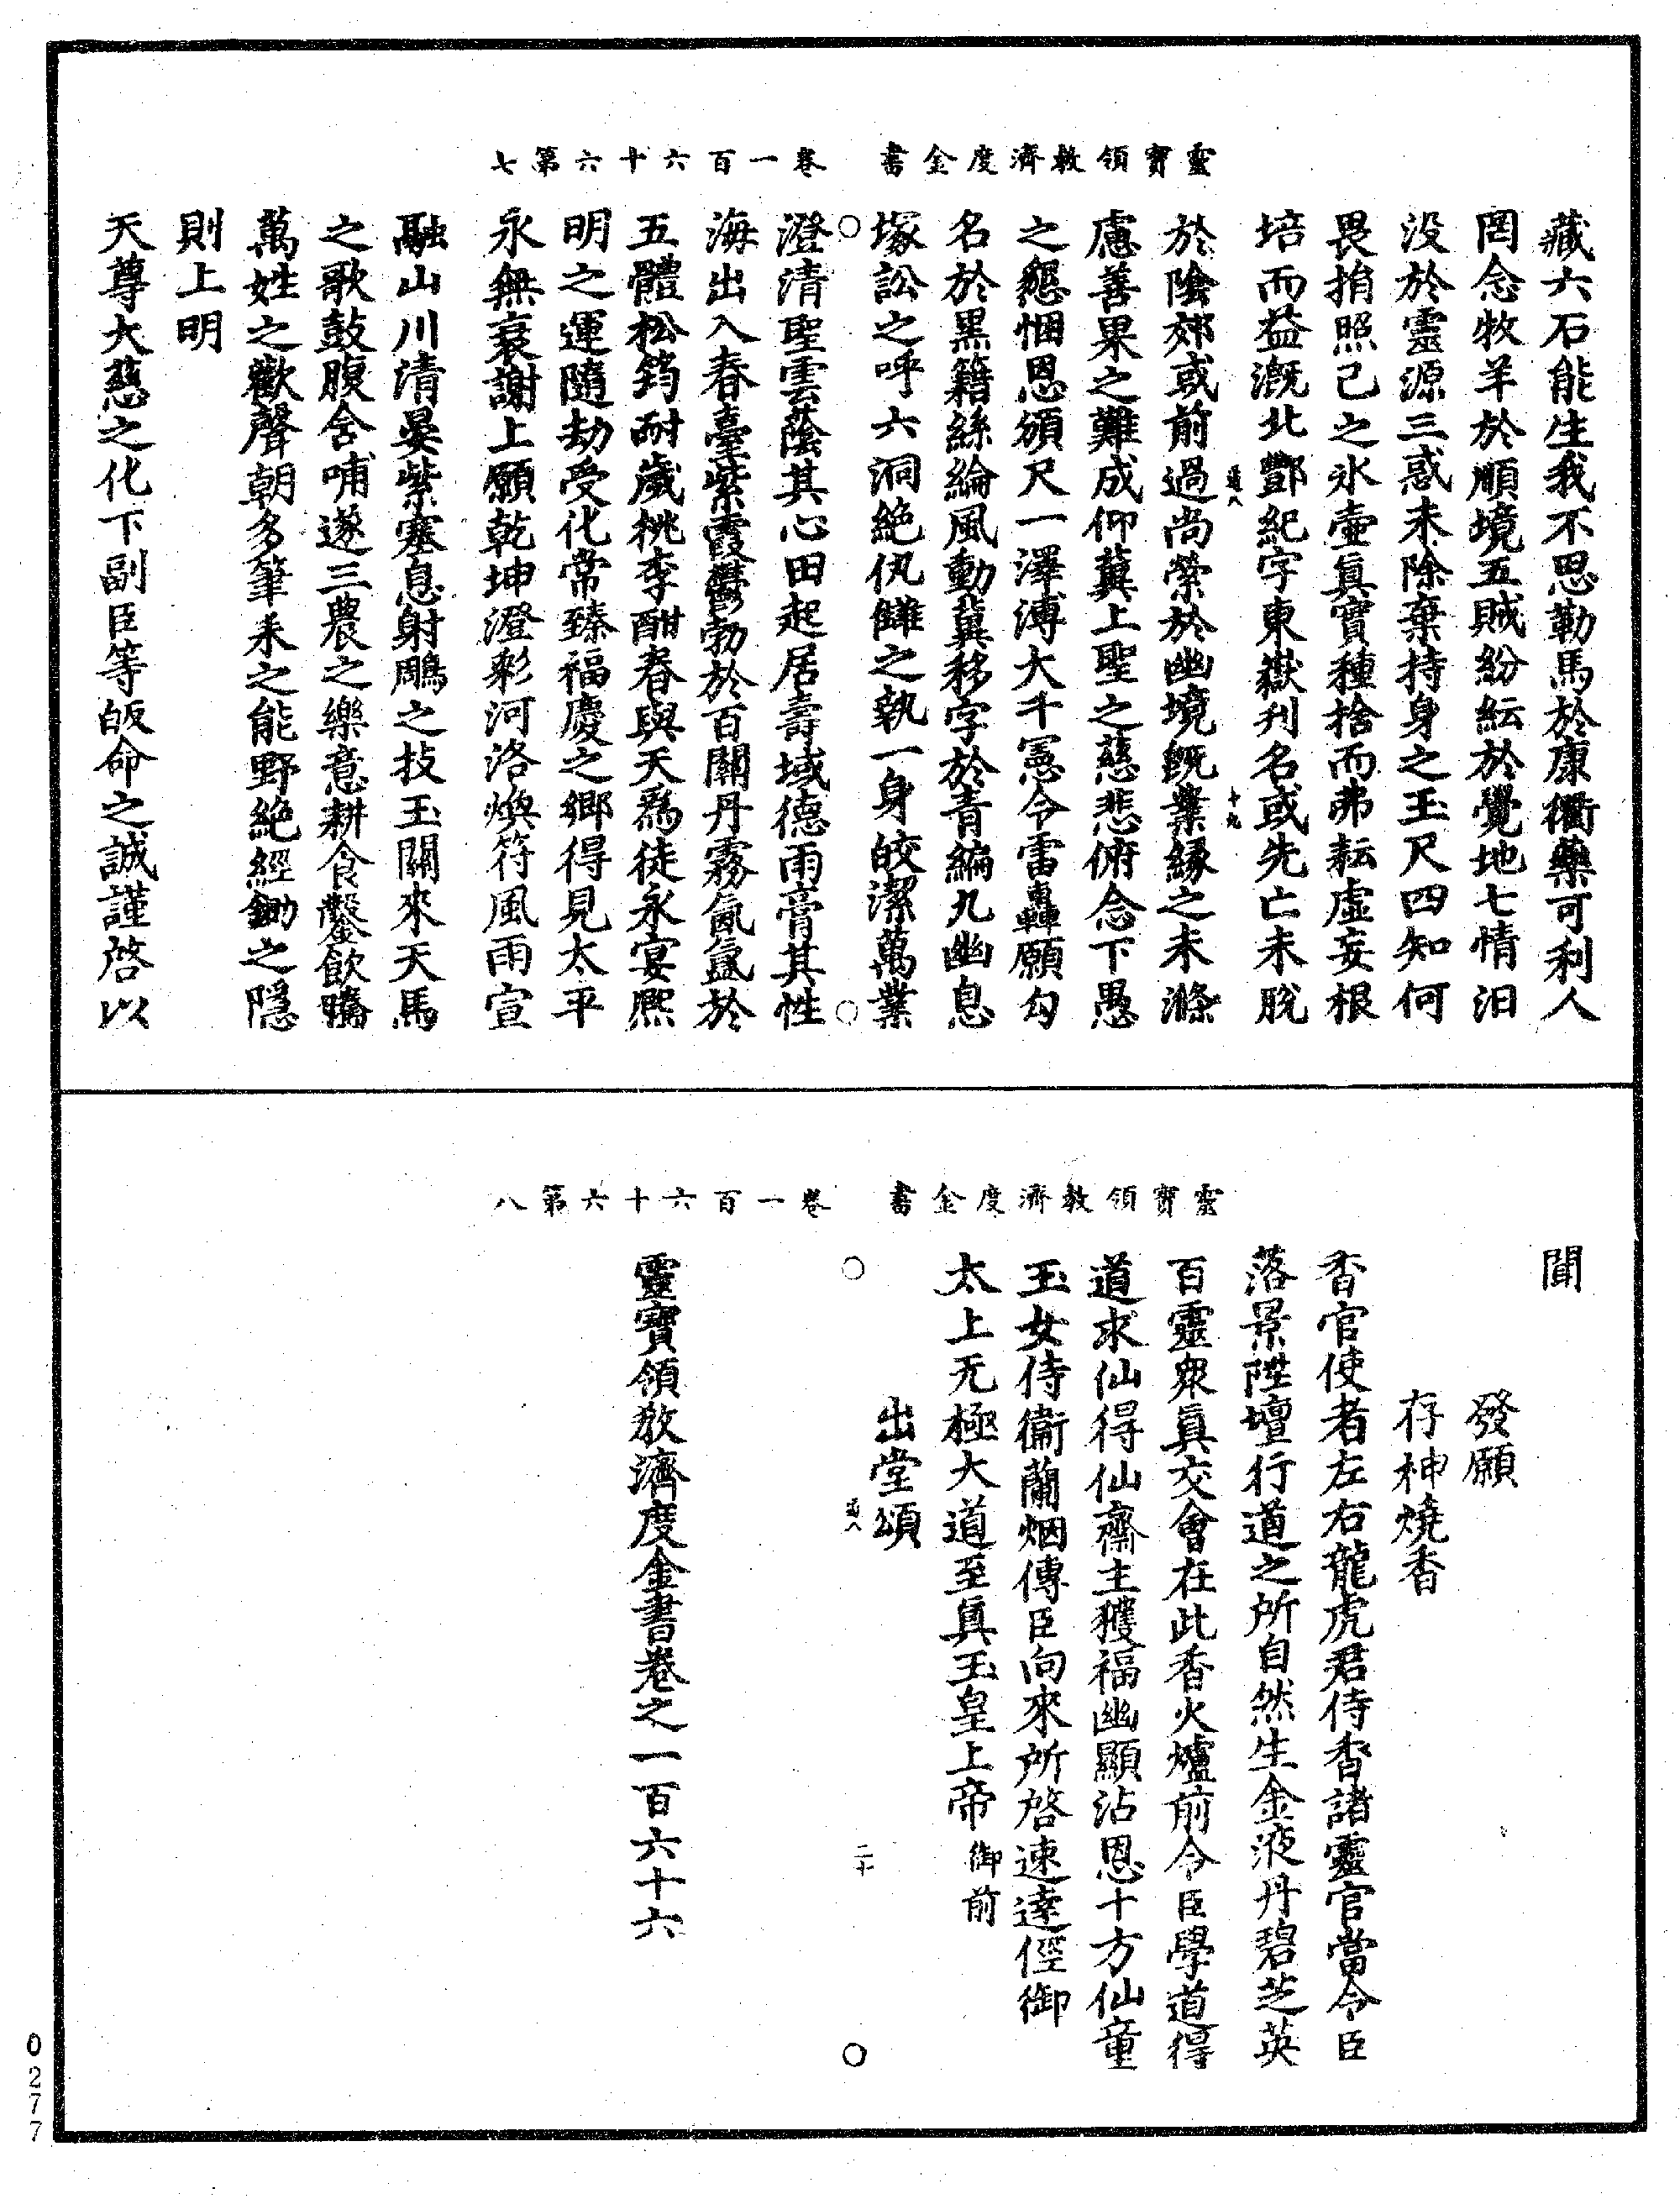 靈寶領教濟度金書　卷一百六十六第七
藏六石能生我不思勒馬於康衢藥可利人
罔念牧羊於順境五賊紛紜於覺地七情汨
没於靈源三惑未除棄持身之玉尺四知何
畏捐照己之氷壺真實種捨而弗耘虛妄根
培而益溉北酆紀字東嶽刋名或先亡未脫
於陰郊或前過尚縈於幽境旣業緣之未滌
道八
十九
慮善果之難成仰蘄上聖之慈悲俯念下愚
之懇悃恩頒尺一澤溥大千憲令雷轟願勾
名於黑籍絲綸風動冀移字於青編九幽息
塚訟之呼六洞絶仇讎之執一身皎潔萬業
澄清聖雲蔭其心田起居壽域德雨膏其性
海出入春臺紫霞鬱勃於百關丹霧氤氳於
五體松筠耐歲桃李酣春與天爲徒永宴熈
明之運隨劫受化常臻福慶之鄉得見太平
永無衰謝上願乾坤澄彩河洛煥符風雨宣
融山川清晏紫塞息射鵰之技玉關來天馬
之歌鼓腹含哺遂三農之樂意耕食鑿飲騰
萬姓之歡聲朝多筆耒之能野絶經鋤之隱
則上明
天尊大慈之化下副臣等皈命之誠謹啓以
靈寶領教濟度金書　卷一百六十六第八
聞
發願
存神燒香
香官使者左右龍虎君侍香諸靈官當令臣
落景陞壇行道之所自然生金液丹碧芝英
百靈衆眞交會在此香火爐前令臣學道得
道求仙得仙齋主獲福幽顯沾恩十方仙童
玉女侍衞蘭烟傳臣向來所啓速達徑御
太上无極大道至眞玉皇上帝御前
出堂頌
道八
二十
靈寶領教濟度金書卷之一百六十六
0277